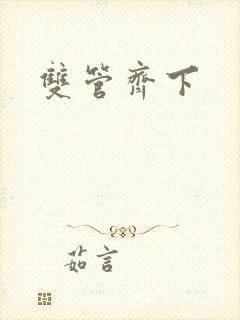 雙管齊下
茹言